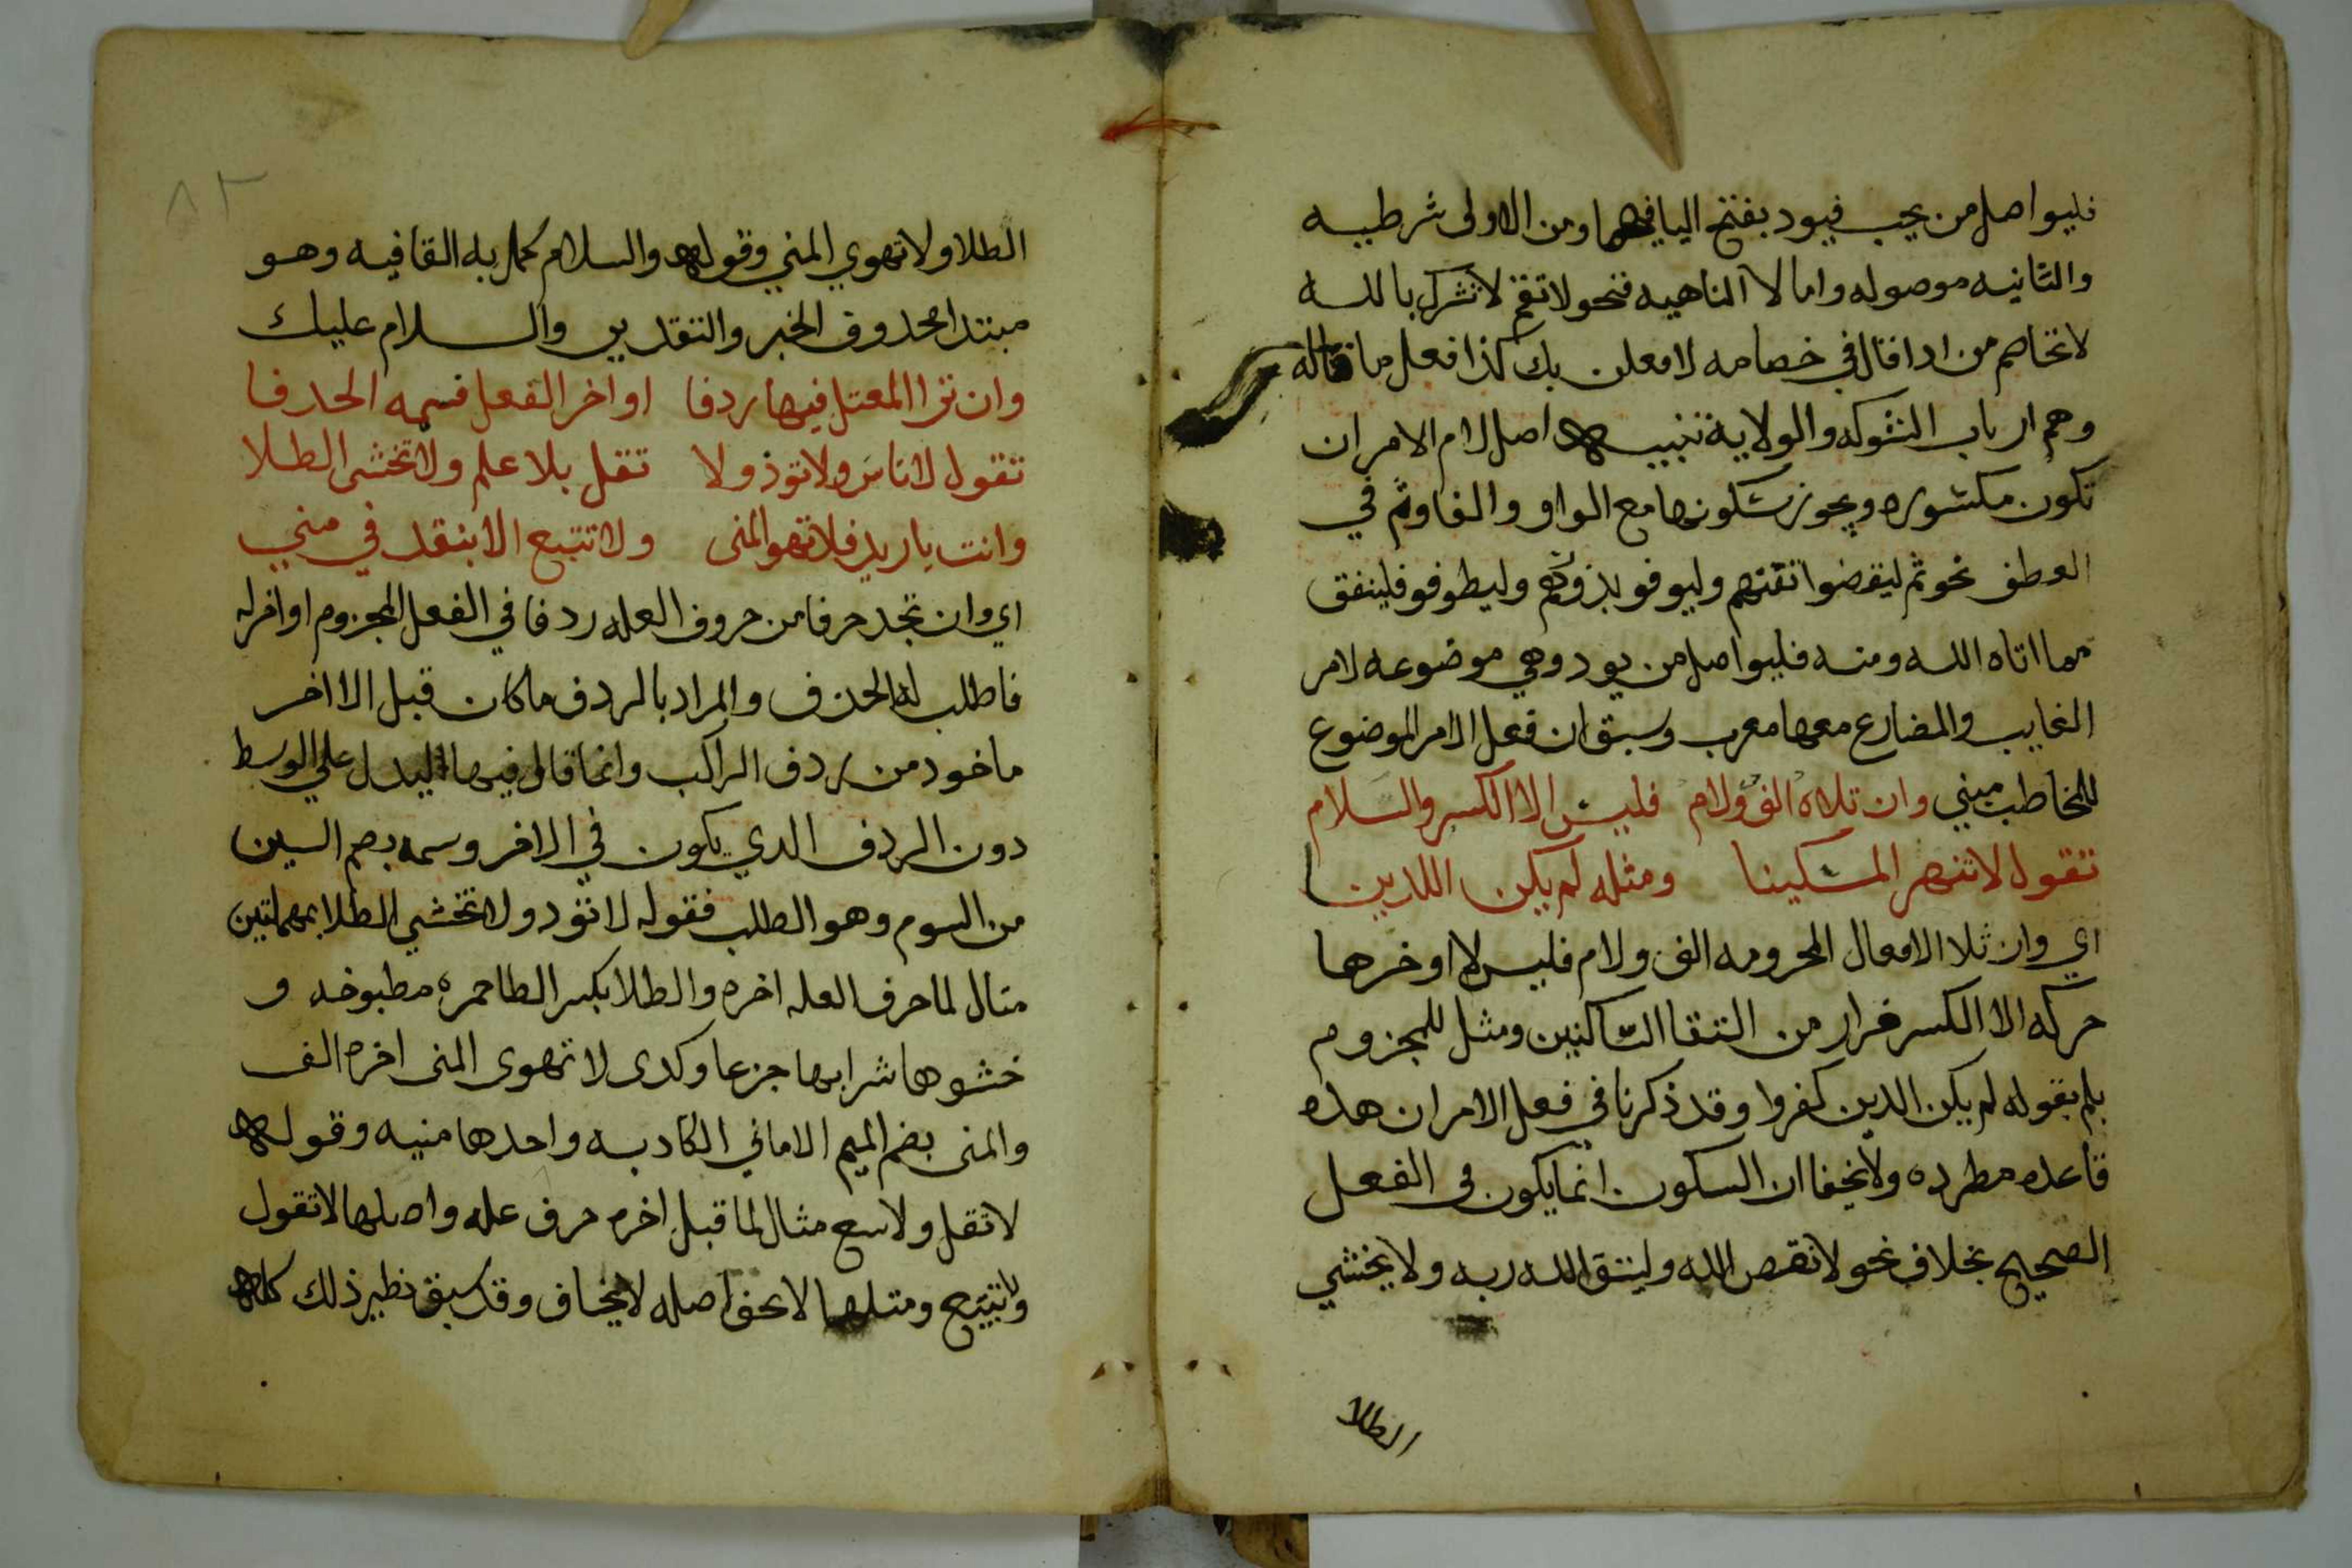 فليواصل من يحب فيود بفتح اليا فيهما ومن الاولى شرطيه
والثانيه موصوله واما لا الناهيه فنحو لا تقم لا تشرك بالله
لا تخاصم من اذا قال في خصامه لا معلن بك كذا فعل ما قاله
وهم ارباب الشوكه والولاية تنبيه اصل لام الامر ان
تكون مكسوره ويجوز سكونها مع الواو والفا وثم في
العطف نحو ثم ليقضوا تفثهم وليوفو نذورهم وليطوفو فلينفق
مما اتاه الله ومنه فليواصل من يود وهي موضوعه لامر
الغايب والمضارع معها معرب وسبق ان فعل الامر الموضوع
للمخاطب مبني وان تلاه الف ولام فليس الا الكسر والسلام
تقول لا تنهر المسكينا ومثله لم يكن اللدين
اي وان تلا الافعال المجرومه الف ولام فليس لاا وخرها
حركه الا الكسر فرار من التقا الساكنين ومثل للمجزوم
بلم بقوله لم يكن الدين كفروا وقد ذكرنا في فعل الامر ان هده
قاعده مطرده ولا يخفا ان السكون انما يكون في الفعل
الصحيح بخلاف نحو لا تقص الله وليتق الله ربه ولا يخشي
الطلا
٨٢
الطلا ولا تهوي المني وقوله والسلام كمل به القافيه وهو
مبتدا محدوف الخبر والتقدير والسلام عليك
وان ترا المعتل فيها ردفا او اخر الفعل فسمه الحدفا
تقول لا تاس ولا توذ ولا تقل بلا علم ولا تخشى الطلا
وانت يا زيد فلا تهو المنى ولا تتبع الا بنقد في مني
اي وان تجد حرفا من حروف العله ردفا في الفعل المجزوم او اخره
فاطلب له الحذف والمراد بالردف ما كان قبل الا اخر
ماخود من ردف الراكب وانما قال فيها ليدل علي الوسط
دون الردف الدي يكون في الاخر وسمه بضم السين
من السوم وهو الطلب فقوله لا تؤد ولا تخشي الطلا بمهملتين
مثال لما حرف العله اخره والطلا بكسر الطا خمره مطبوخه و
خشوها شرابها جزعا وكدى لا تهوى المنى اخره الف
والمنى بضم الميم الاماني الكادبه واحدها منيه وقوله
لا تقل ولا تبع مثال لما قبل اخره حرف عله واصلها لا تقول
ولا تبيع ومثلها لا تخف اصله لا يخاف وقد سبق نظير ذلك كله